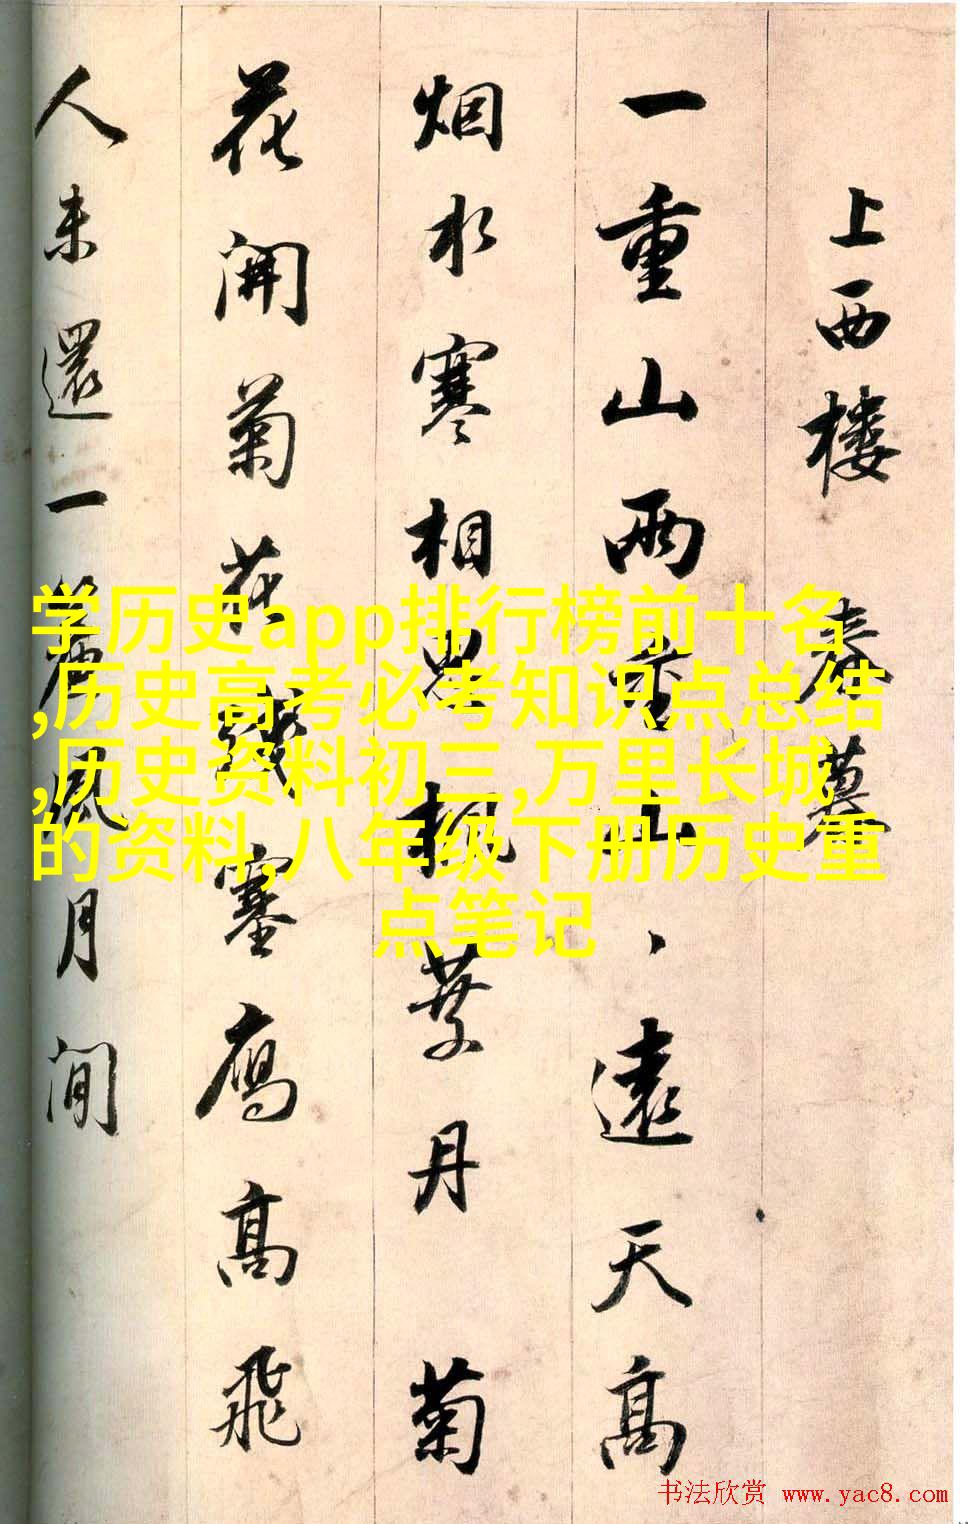 上西楼 春暮
一重山兩重山、遠天高
烟水寒相思枫葉丹 菊
花開菊花残塞鴈高飛
人未還一簾風月閒
学历史app排行榜前十名
,历史高考必考知识点总结
,历史资料初三,万里长城
的资料,八年级下册历史重
点笔记
书法欣赏 www.yac8.com